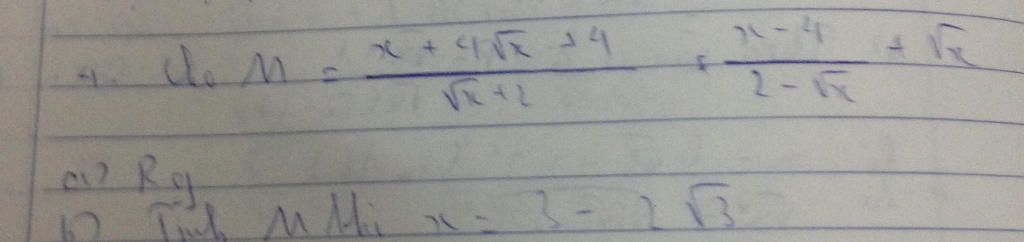 4. Cho M = \frac{x + 4\sqrt{x} + 4}{\sqrt{x} + 2} + \frac{x - 4}{2 - \sqrt{x}} + \sqrt{x}
a) Rg
b) Tính M khi x = 3 - 2\sqrt{3}